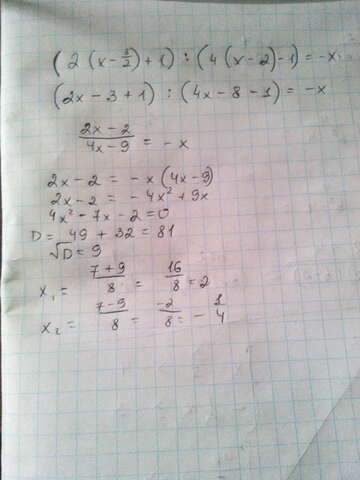 (2(x-3/2)+1) : (4(x-2)-1) = -x
(2x-3+1) : (4x-8-1) = -x
(2x-2)/(4x-9) = -x
2x-2 = -x(4x-9)
2x-2 = -4x²+9x
4x²-7x-2=0
D = 49+32=81
√D=9
x₁ = (7+9)/8 = 16/8 = 2
x₂ = (7-9)/8 = -2/8 = -1/4